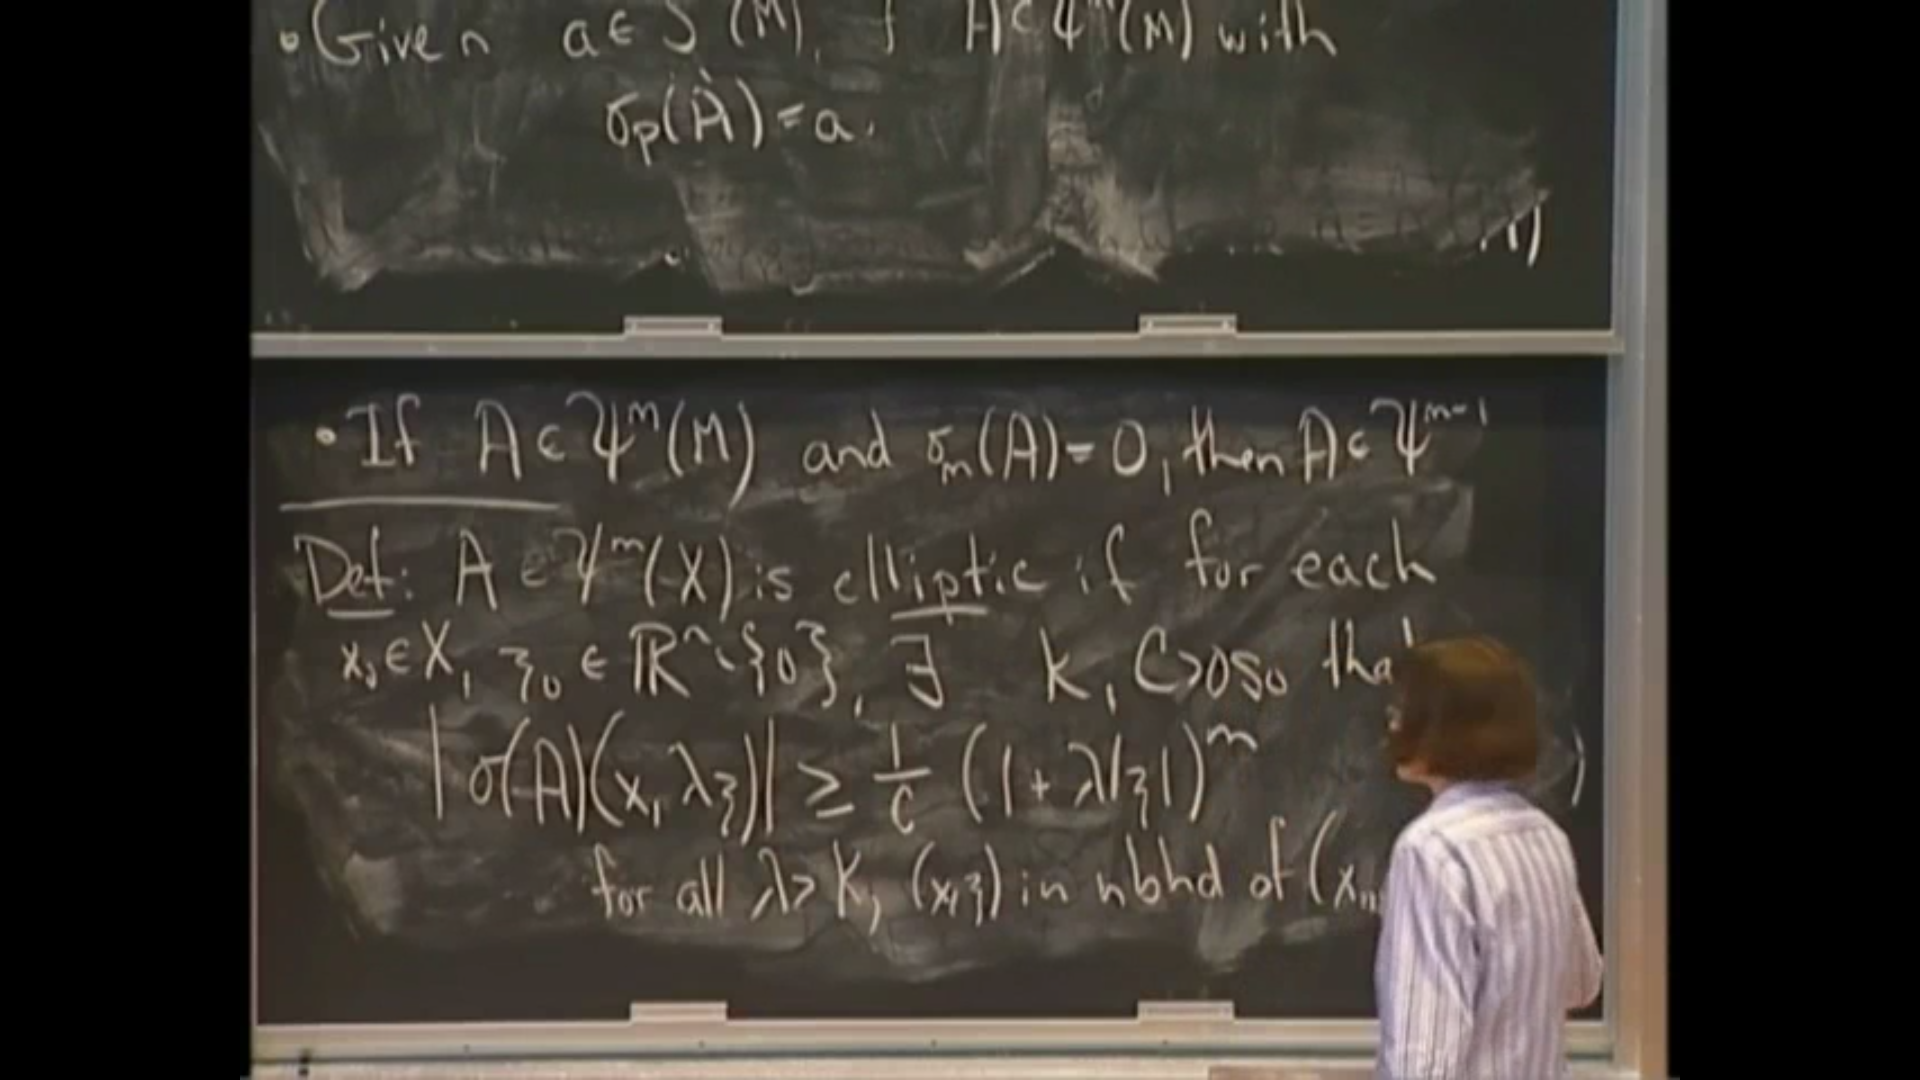 • Given a ∈ S (M), ∃ A ∈ Ψᵐ(M) with
σₚ(A) = a.
• If A ∈ Ψᵐ(M) and σₘ(A) = 0, then A ∈ Ψᵐ⁻¹
Def: A ∈ Ψᵐ(X) is elliptic if for each
x₀ ∈ X, ξ₀ ∈ ℝⁿ \ {0}, ∃ K, C>0 so that
|σ(A)(x, λξ)| ≥ 1/C (1 + λ|ξ|)ᵐ
for all λ > K, (x,ξ) in nbhd of (x₀,